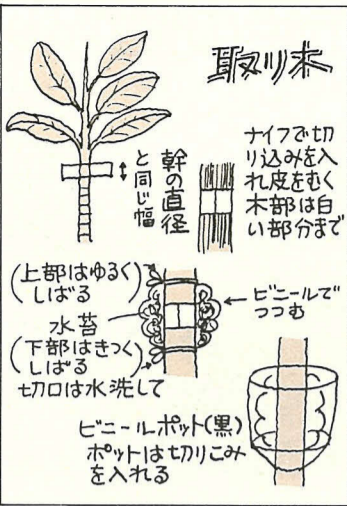 取り木
幹の直径
と同じ幅
ナイフで切
り込みを入
れ皮をむく
木部は白
い部分まで
(上部はゆるく
しばる)
水苔
(下部はきつく
しばる)
切口は水洗して
ビニールで
つつむ
ビニールポット(黒)
ポットは切りこみ
を入れる